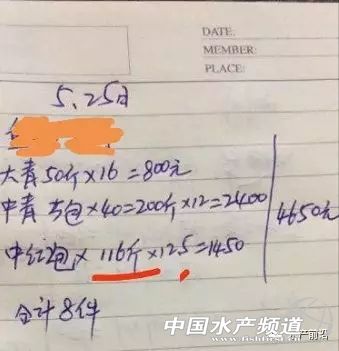 DATE:
MEMBER:
PLACE:
5.25日
大青 50斤×16=800元
中青 5包×40=200斤×12=2400
中红2包× 116斤×12.5=1450
4650元
合计8件
中国水产频道
产前哨